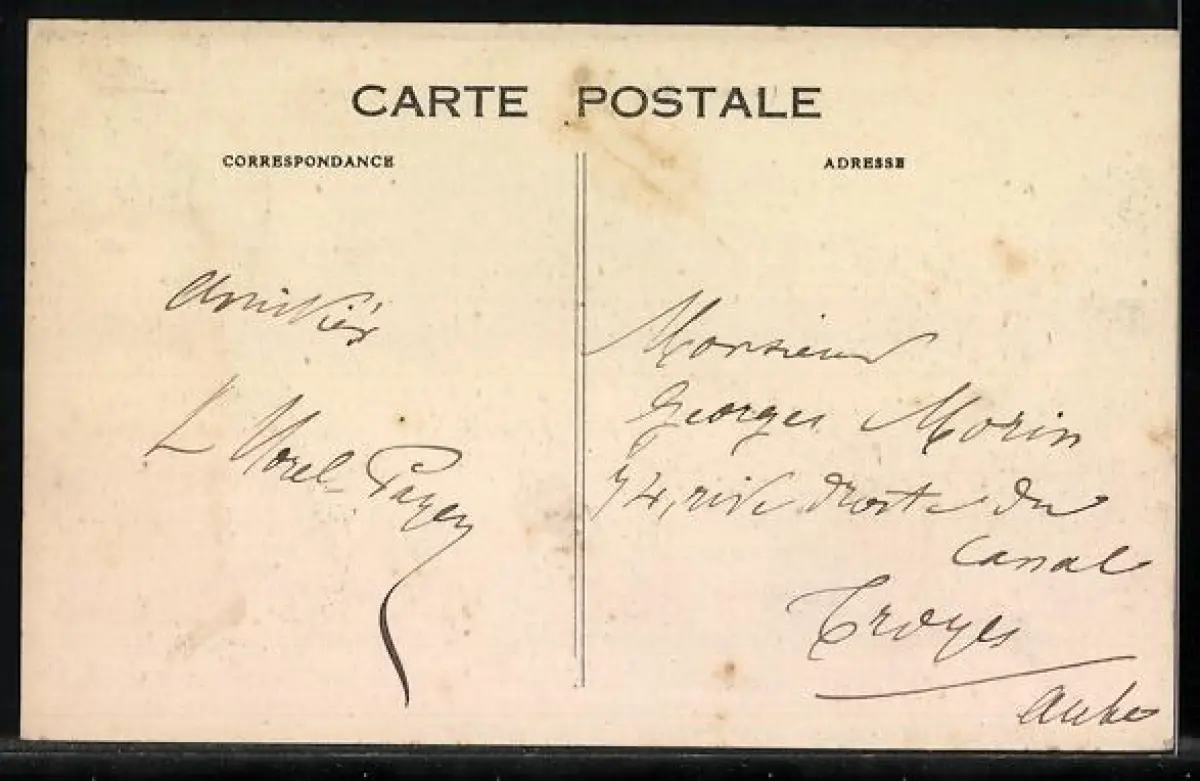 CARTE POSTALE
CORRESPONDANCE
amitiés
L Morel-Payen
ADRESSE
Monsieur
Georges Morin
74, rive droite du
canal
Troyes
Aube